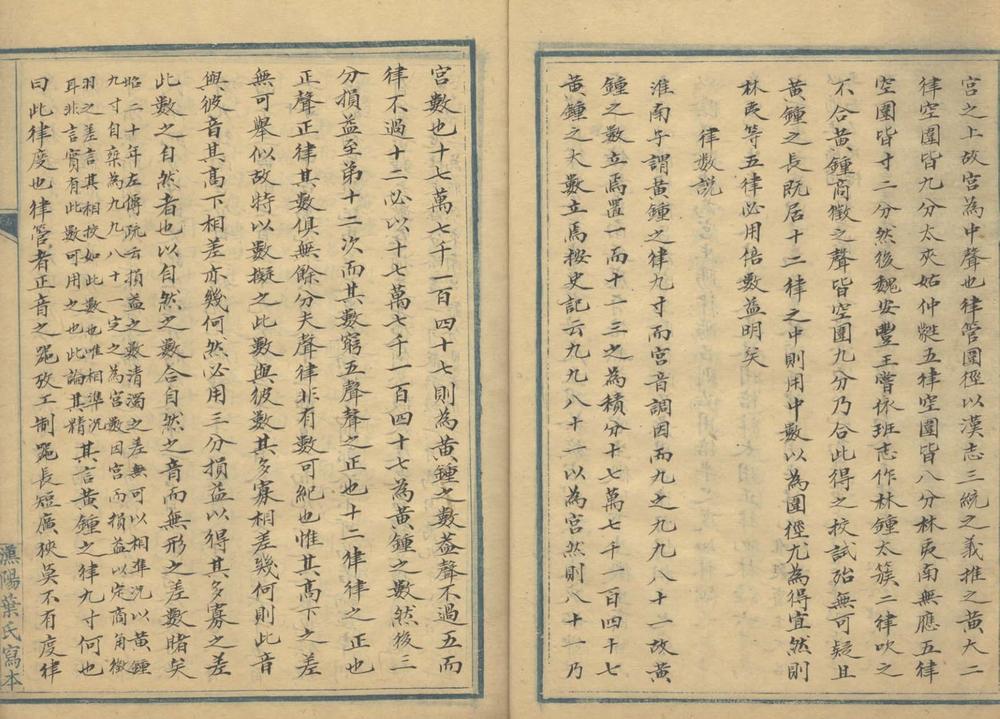 宮之上故宮為中聲也律管圍徑以漢志三統之義推之黃大二
律空圍皆九分太夾姑仲蕤五律空圍皆八分林夷南無應五律
空圍皆寸二分然後魏安豐王嘗依班志作林鍾太簇二律吹之
不合黃鍾商徵之聲皆空圍九分乃合此得之校試殆無可疑且
黃鍾之長既居十二律之中則用中數以為圍徑尤為得宜然則
林夷等五律必用倍數益明矣
律數說
淮南子謂黃鍾之律九寸而宮音調因而九之九九八十一故黃
鍾之數立焉置一而十一三之為積分十七萬七千一百四十七
黃鍾之大數立焉按史記云九九八十一以為宮然則八十一乃
宮數也十七萬七千一百四十七則為黃鍾之數蓋聲不過五而
律不過十二必以十七萬七千一百四十七為黃鍾之數然後三
分損益至弟十二次而其數窮五聲聲之正也十二律律之正也
正聲正律其數俱無餘分夫聲律非有數可紀也惟其高下之差
無可舉似故特以數擬之此數與彼數其多寡相差幾何則此音
與彼音其高下相差亦幾何然必用三分損益以得其多寡之差
此數之自然者也以自然之數合自然之音而無形之差數睹矣
昭二十年左傳疏云損益之數清濁之差無可以相準況以黃鍾
九寸自乘為九九八十一定之為宮數因宮而損益以定商角徵
羽之差言其相校如此數也唯相準況
耳非言實有此數可用之也此論其精
其言黃鍾之律九寸何也
曰此律度也律管者正音之器攷工制器長短廣狹莫不有度律
漢陽葉氏寫本